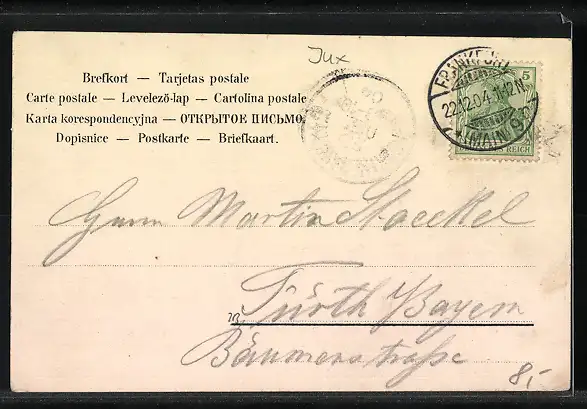 Jux
Brefkort — Tarjetas postale
Carte postale — Levelező-lap — Cartolina postale
Karta korespondencyjna — ОТКРЫТОЕ ПИСЬМО.
Dopisnice — Postkarte — Briefkaart.
FRANKFURT
22.12.04.11-12N.
(MAIN) 9
5
REICH
Herrn Martin Staeckel
Fürth Bayern
Bäumenstraße
8,-